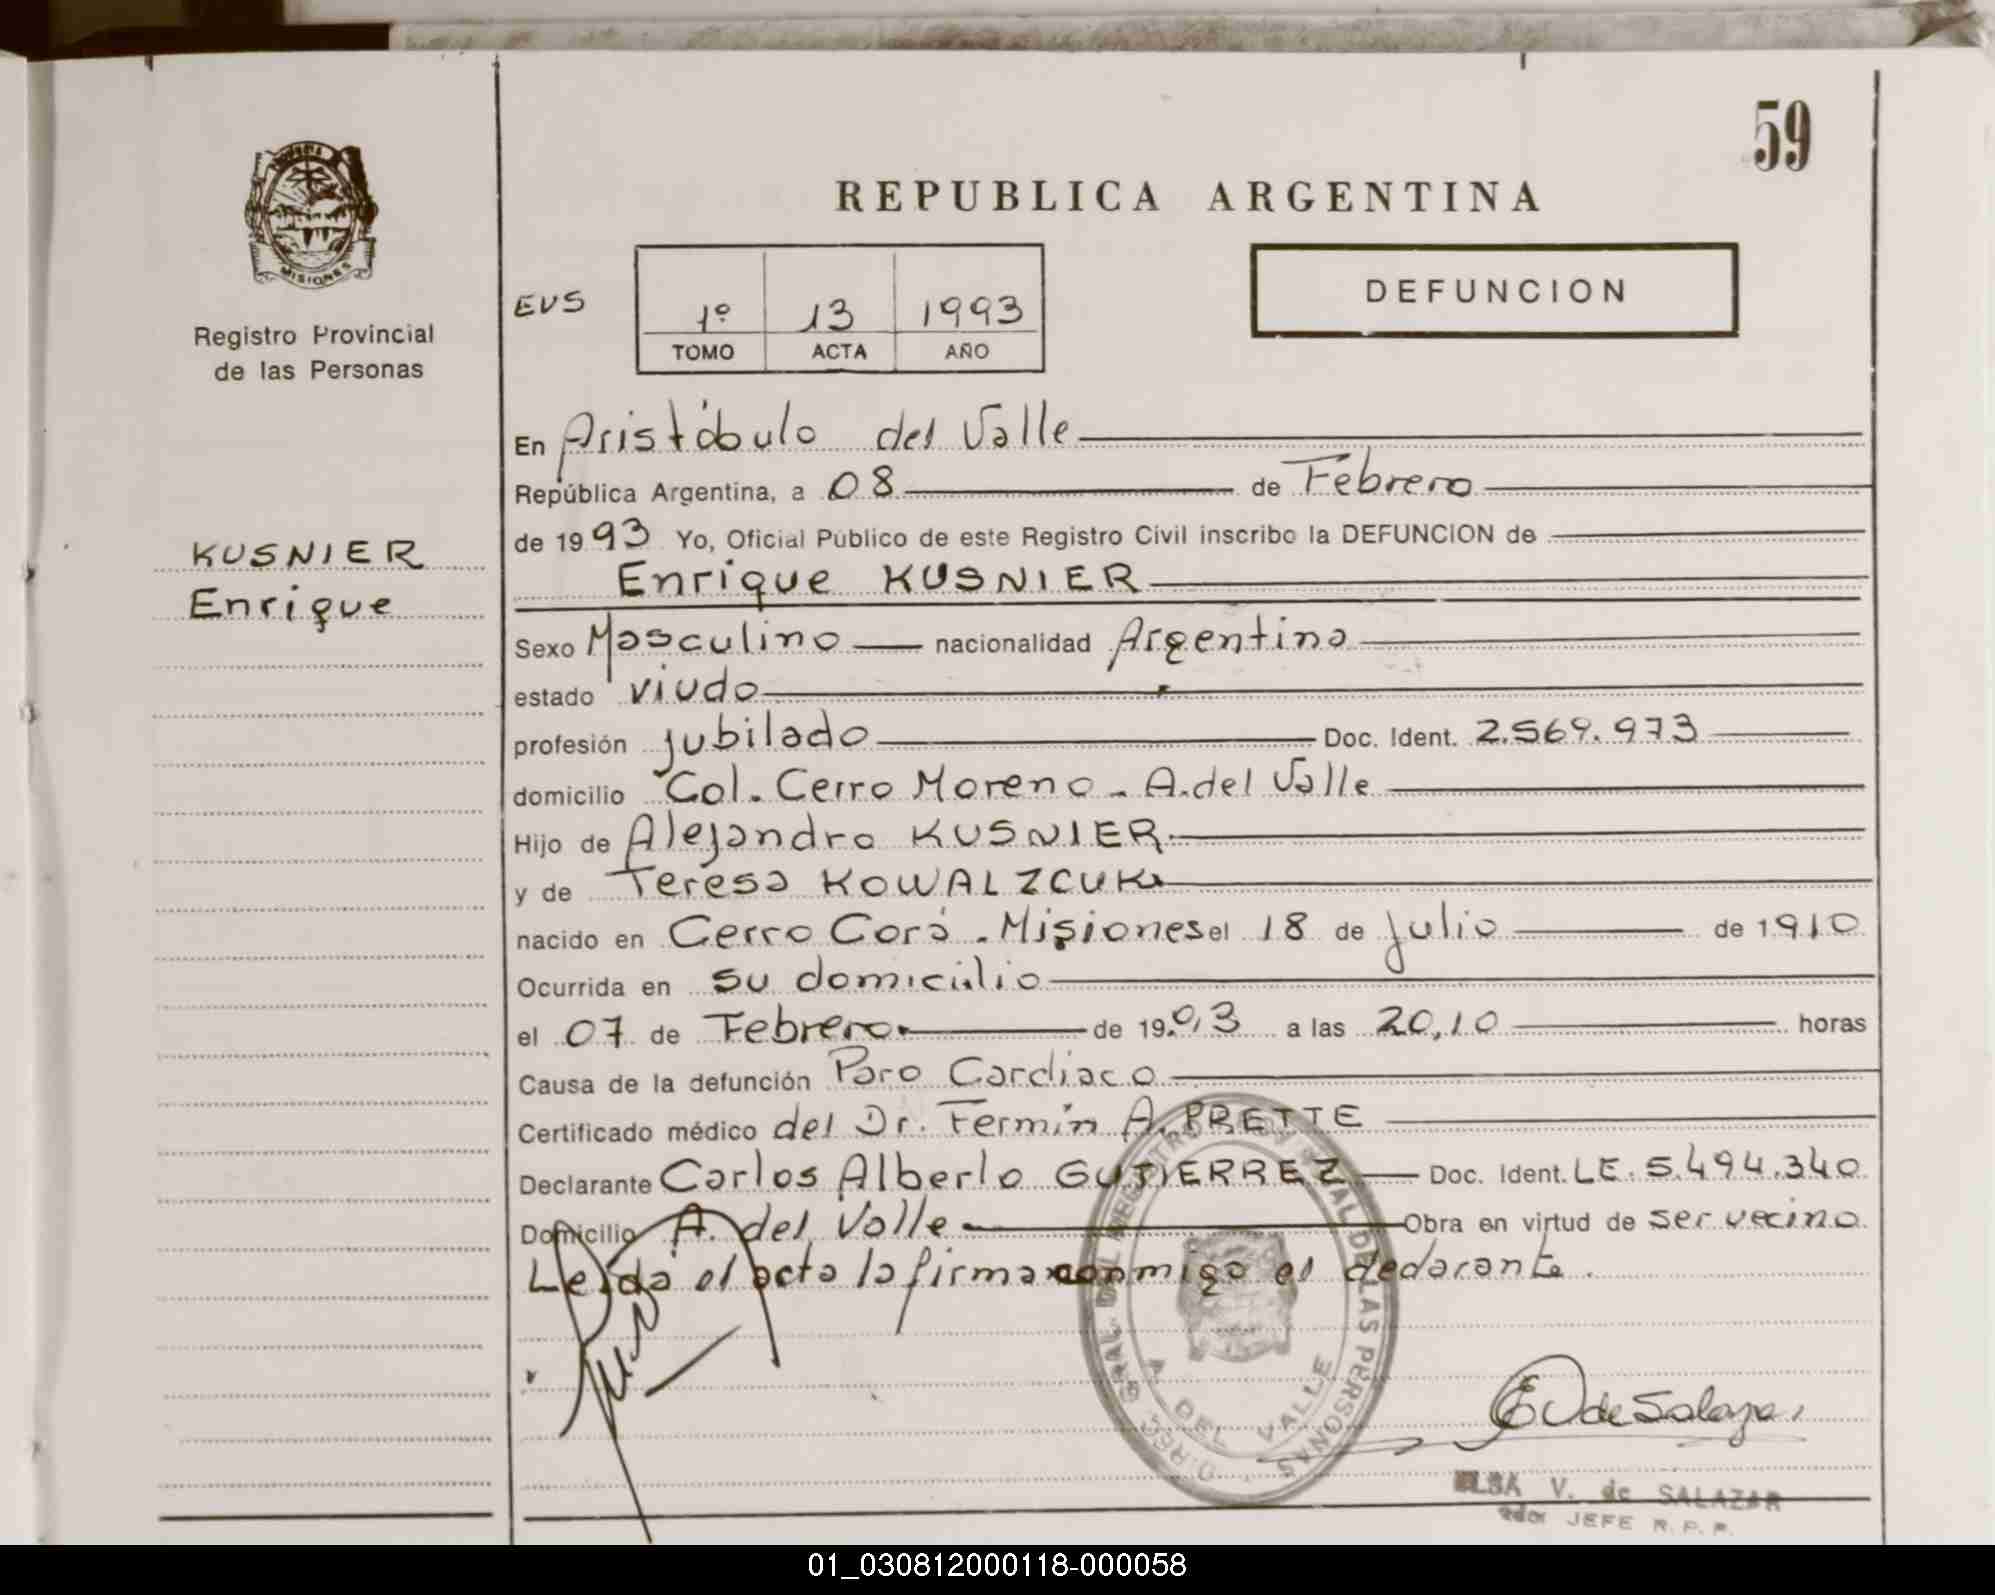 59
REPUBLICA ARGENTINA
MISIONES
Registro Provincial
de las Personas
EVS
1º 13 1993
TOMO ACTA AÑO
DEFUNCION
KUSNIER
Enrique
En Aristóbulo del Valle
República Argentina, a 08 de Febrero
de 1993 Yo, Oficial Público de este Registro Civil inscribo la DEFUNCION de
Enrique KUSNIER
Sexo Masculino nacionalidad Argentina
estado viudo
profesión jubilado Doc. Ident. 2.569.973
domicilio Col. Cerro Moreno - A. del Valle
Hijo de Alejandro KUSNIER
y de Teresa KOWALZCUK
nacido en Cerro Corá. Misiones el 18 de julio de 1910
Ocurrida en su domicilio
el 07 de Febrero de 1993 a las 20,10 horas
Causa de la defunción Paro Cardiaco
Certificado médico del Dr. Fermín A. PRETTE
Declarante Carlos Alberto GUTIERREZ Doc. Ident. LE. 5.494.340
Domicilio A. del Valle Obra en virtud de ser vecino
Leída el acta la firma conmigo el declarante.
DIREC. GRAL. DEL REGISTRO PCIAL DE LAS PERSONAS
A DEL VALLE
EV de Salazar
ELSA V. de SALAZAR
JEFE R. P. P.
01_030812000118-000058